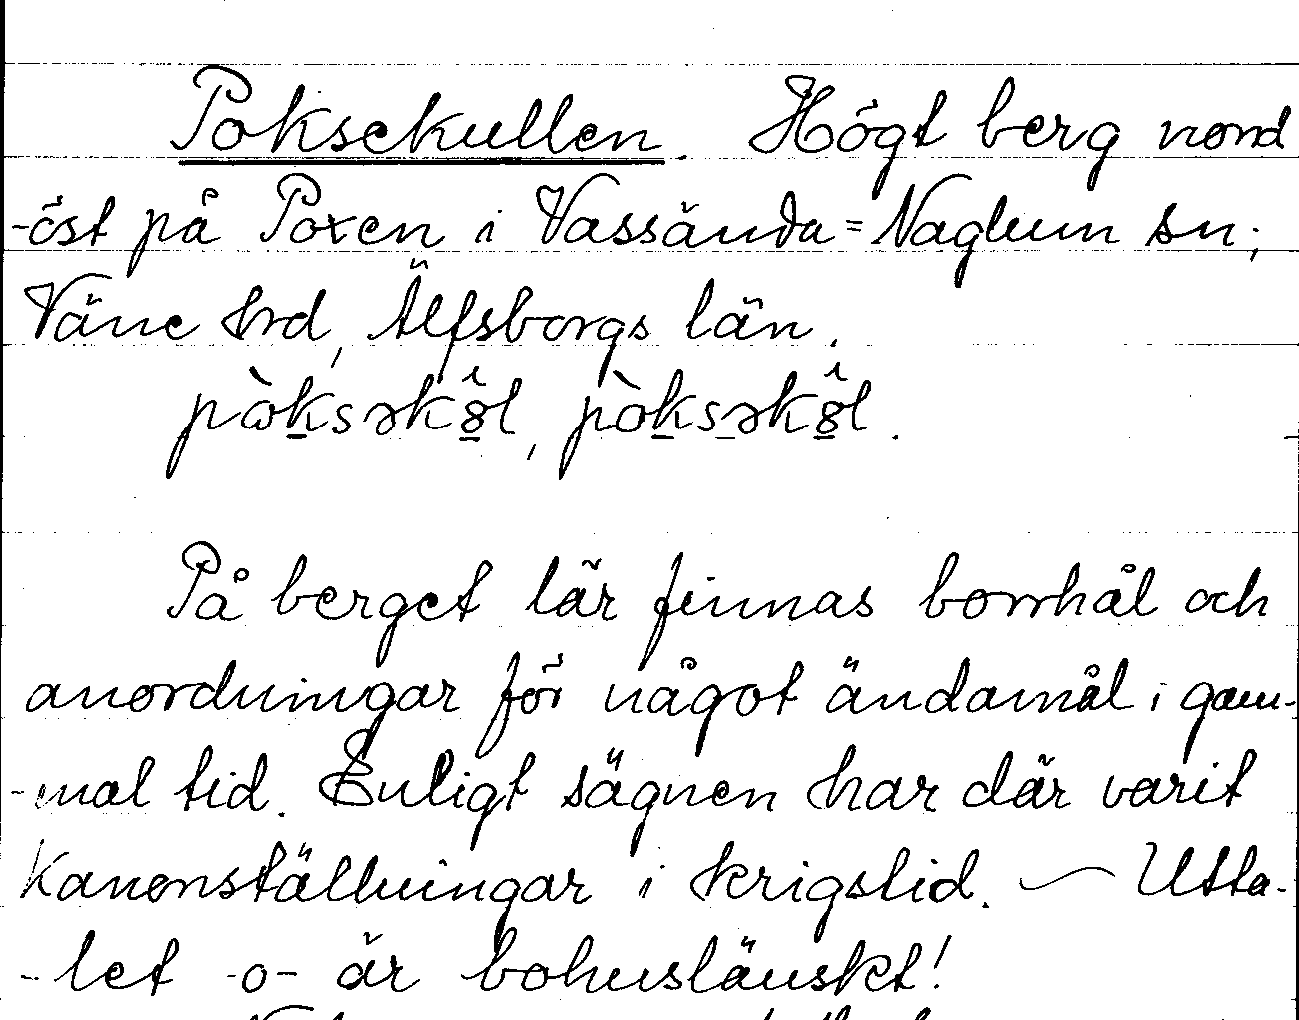 Poksekullen. Högt berg nord
-öst på Poxen i Vassända=Naglum sn;
Väne hrd, Älfsborgs län.
pòksəkô̂l, pòksəkô̂l.
På berget lär finnas borrhål och
anordningar för något ändamål i gam-
-mal tid. Enligt sägnen har där varit
Kanonställningar i krigstid. — Utta-
-let -o- är bohuslänskt!